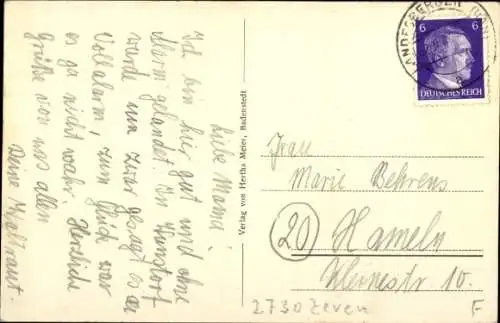 Liebe Mama!
Ich bin hier gut und ohne
Alarm gelandet. In Wunstorf
wurde uns zwar gesagt es sei
Vollalarm, zum Glück war
es ja nicht wahr. Herzliche
Grüße von uns allen
Deine Waltraut.
Verlag von Hertha Meier, Badenstedt.
LANDESBERGEN
6 6
DEUTSCHES REICH
Frau
Marie Behrens
20 Hameln
Kleinestr 10.
2730 Zeven
F